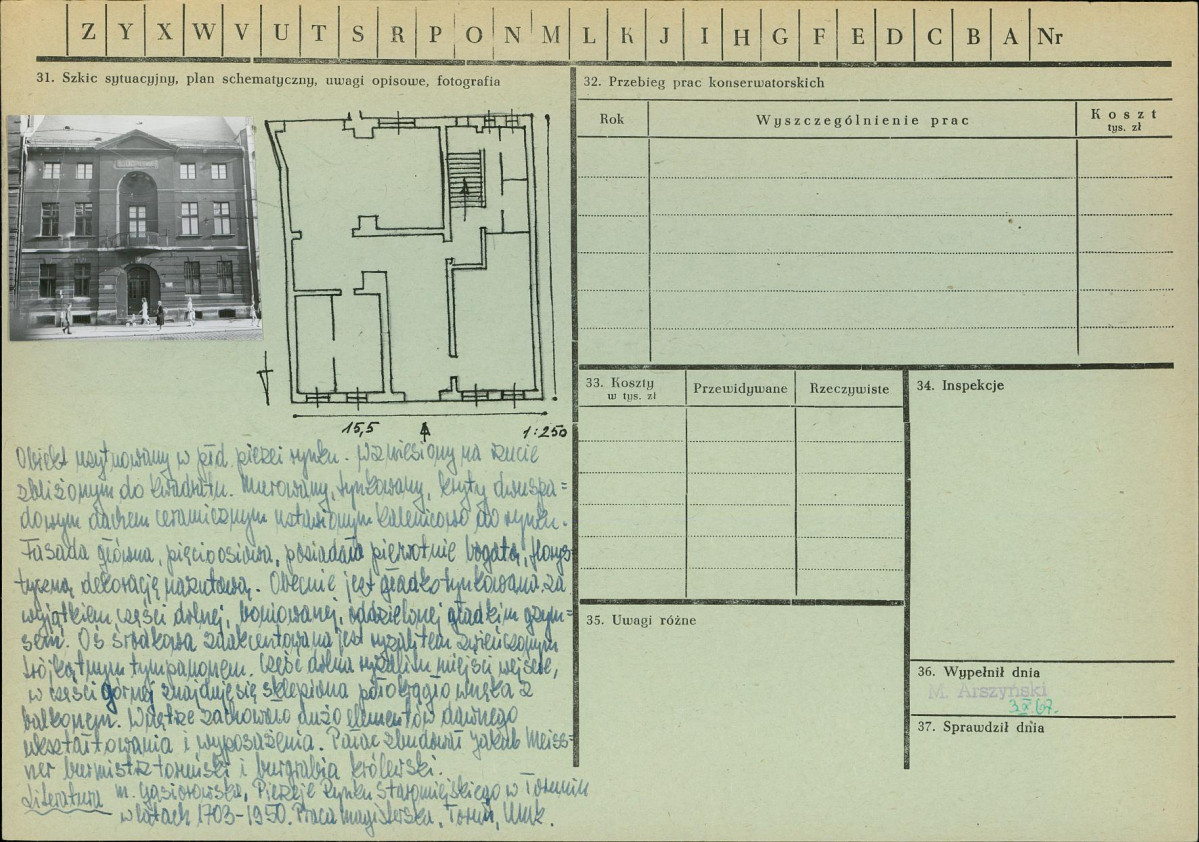 Z Y X W V U T S R P O N M L K J I H G F E D C B A Nr
31. Szkic sytuacyjny, plan schematyczny, uwagi opisowe, fotografia
15,5
1:250
Obiekt usytuowany w płd. pierzei rynku. Wzniesiony na rzucie
zbliżonym do kwadratu. Murowany, tynkowany, kryty dwuspa=
dowym dachem ceramicznym ustawionym kalenicowo do rynku.
Fasada główna, pięcioosiowa, posiadała pierwotnie bogatą, florys=
tyczną, dekorację narzutową. Obecnie jest gładko tynkowana za
wyjątkiem części dolnej, boniowanej, oddzielonej gładkim gzym=
sem. Oś środkowa zdakcentowana jest ryzalitem zwieńczonym
trójkątnym tympanonem. Część dolna ryzalitu mieści wejście,
w części górnej znajduje się sklepiona półokrągło wnęka z
balkonem. Wnętrze zachowało dużo elementów dawnego
ukształtowania i wyposażenia. Pałac zbudował Jakub Meiss=
ner burmistrz toruński i burgrabia królewski.
Literatura M. Gąsiorowska, Pierzeje Rynku Staromiejskiego w Toruniu
w latach 1703-1950. Praca magisterska, Toruń, UMK.
32. Przebieg prac konserwatorskich
Rok
Wyszczególnienie prac
Koszt
tys. zł
33. Koszty
w tys. zł
Przewidywane
Rzeczywiste
34. Inspekcje
35. Uwagi różne
36. Wypełnił dnia
M. Arszyński
3.X.67.
37. Sprawdził dnia